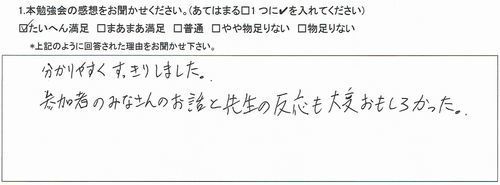 1.本勉強会の感想をお聞かせください。(あてはまる□1つに✔を入れてください)
☑たいへん満足 □まあまあ満足 □普通 □やや物足りない □物足りない
*上記のように回答された理由をお聞かせ下さい。
分かりやすくすっきりしました。
参加者のみなさんのお話と先生の反応も大変おもしろかった。